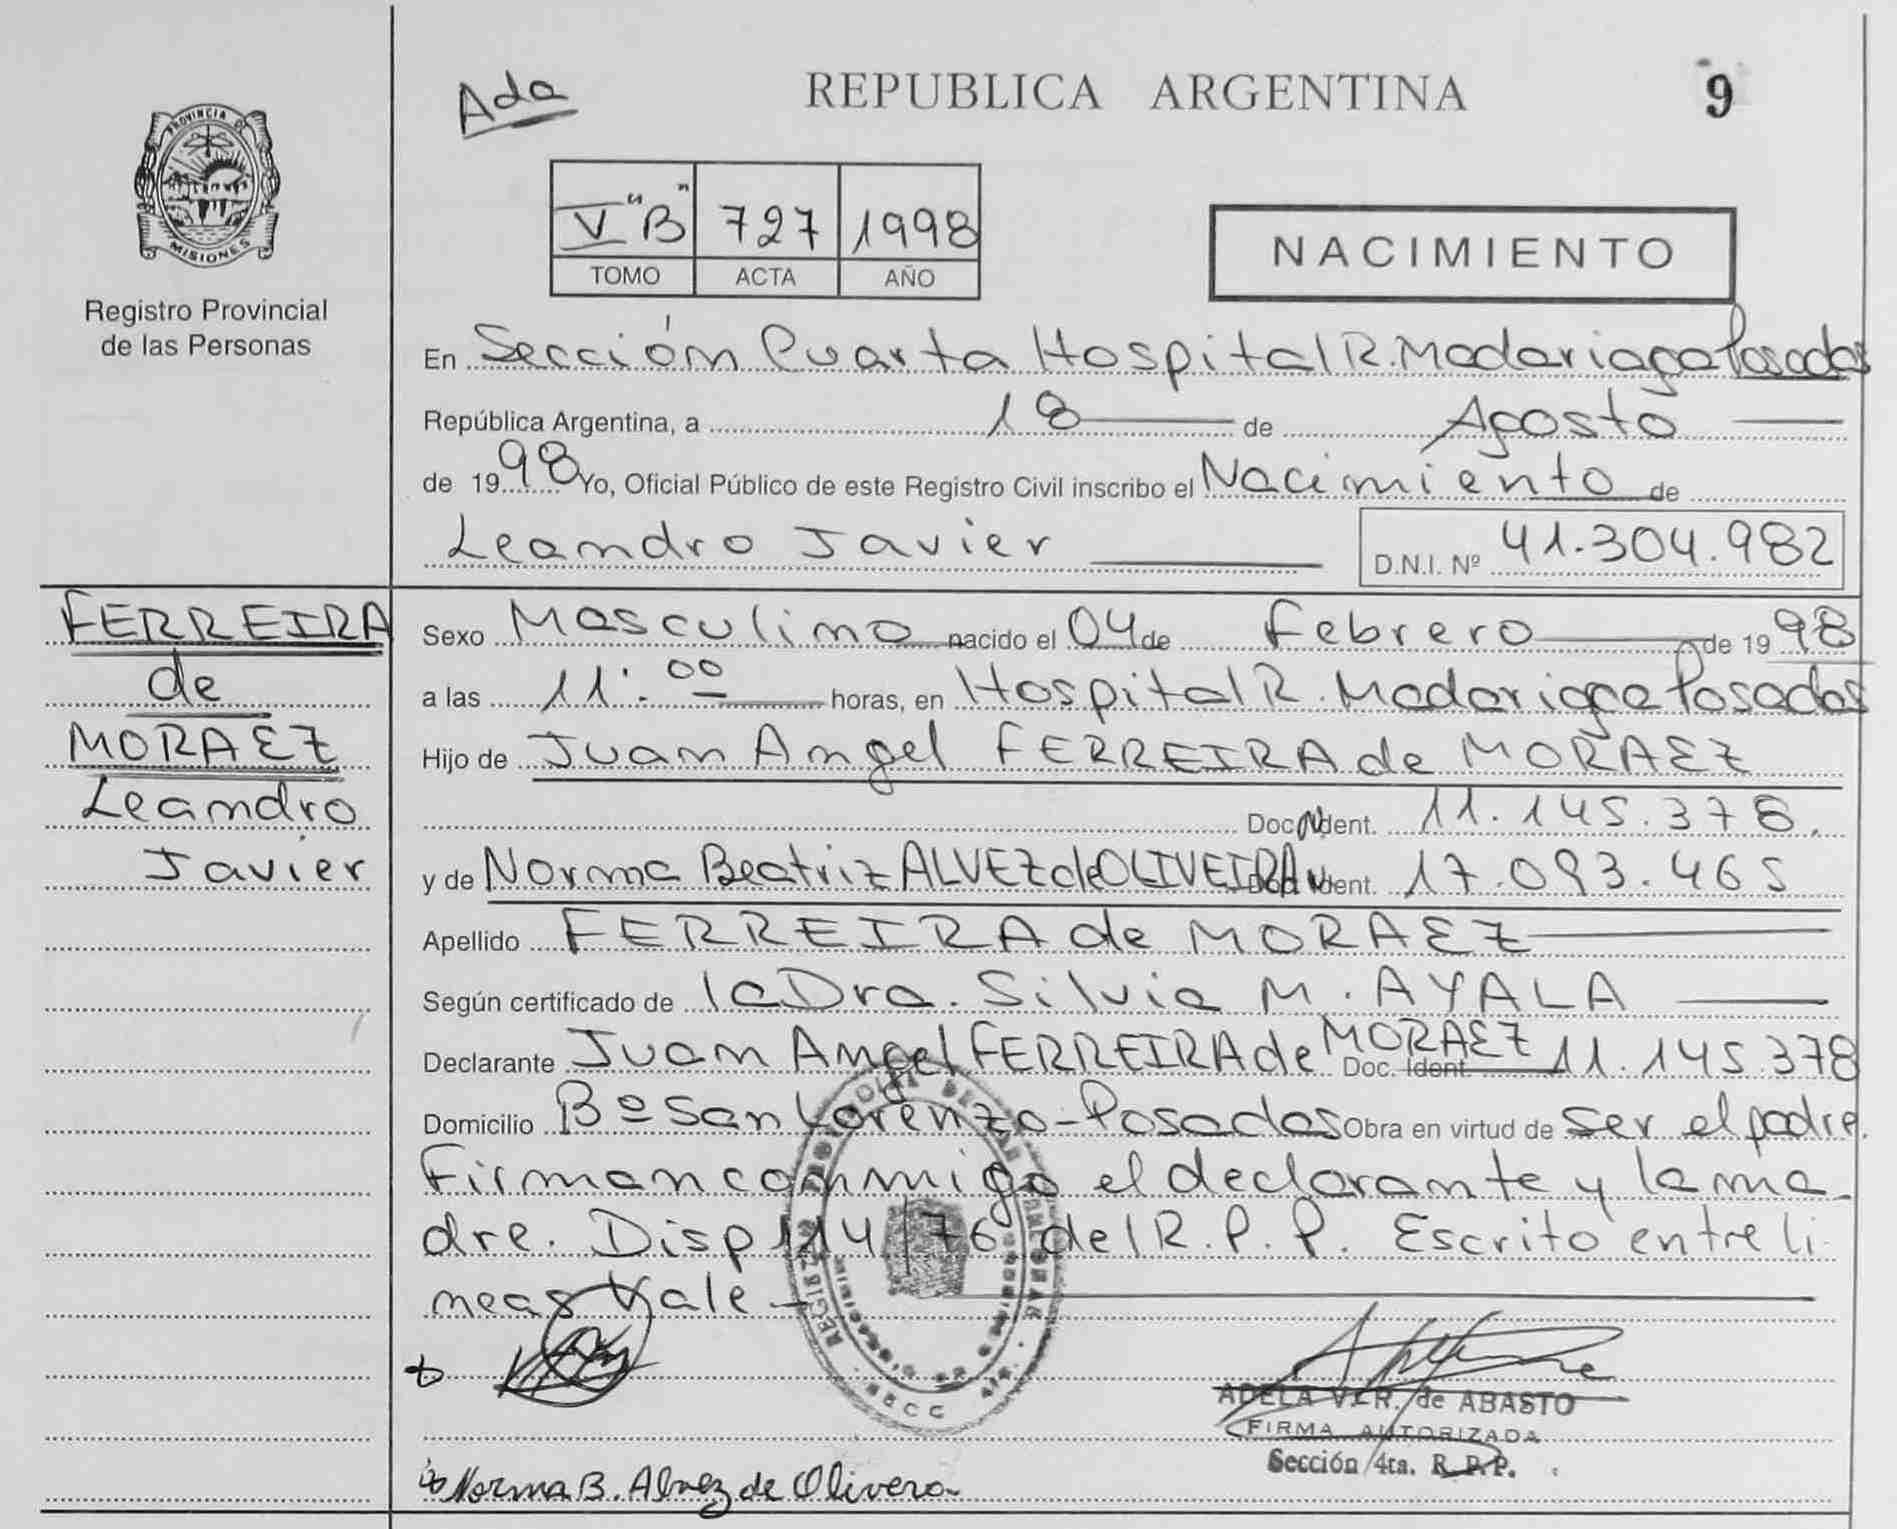 Ada
REPUBLICA ARGENTINA
9
PROVINCIA DE
MISIONES
Registro Provincial
de las Personas
V "B" 727 1998
TOMO ACTA AÑO
NACIMIENTO
En Sección Cuarta Hospital R. Madariaga Posadas
República Argentina, a 18 de Agosto
de 1998 Yo, Oficial Público de este Registro Civil inscribo el Nacimiento de
Leandro Javier
D.N.I. Nº 41.304.982
FERREIRA
de
MORAEZ
Leandro
Javier
Sexo Masculino nacido el 04 de Febrero de 1998
a las 11:00 horas, en Hospital R. Madariaga Posadas
Hijo de Juan Angel FERREIRA de MORAEZ
Doc. Ident. 11.145.378.
y de Norma Beatriz ALVEZ de OLIVEIRA Doc. Ident. 17.093.465
Apellido FERREIRA de MORAEZ
Según certificado de la Dra. Silvia M. AYALA
Declarante Juan Angel FERREIRA de MORAEZ Doc. Ident. 11.145.378
Domicilio Bº San Lorenzo - Posadas Obra en virtud de ser el padre.
Firman conmigo el declarante y la ma-
dre. Disp 114/76 del R.P.P. Escrito entre li-
neas Vale -
ADELA V.R. de ABASTO
FIRMA AUTORIZADA
Sección 4ta. R.P.P.
Norma B. Alvez de Olivera